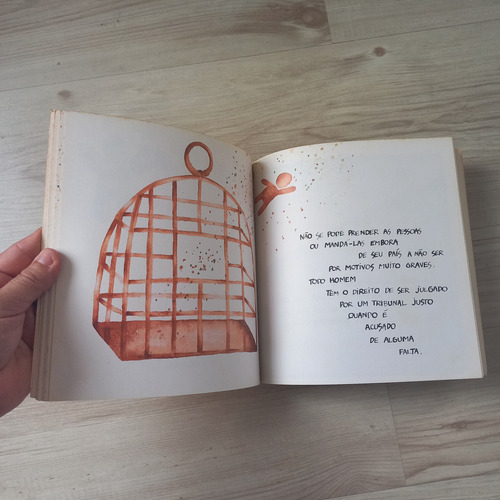 NÃO SE PODE PRENDER AS PESSOAS
OU MANDÁ-LAS EMBORA
DE SEU PAÍS A NÃO SER
POR MOTIVOS MUITO GRAVES.
TODO HOMEM
TEM O DIREITO DE SER JULGADO
POR UM TRIBUNAL JUSTO
QUANDO É
ACUSADO
DE ALGUMA
FALTA.